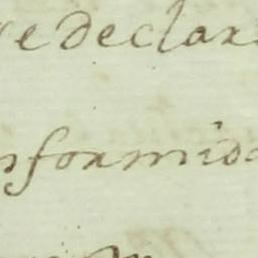 re declar
nformid